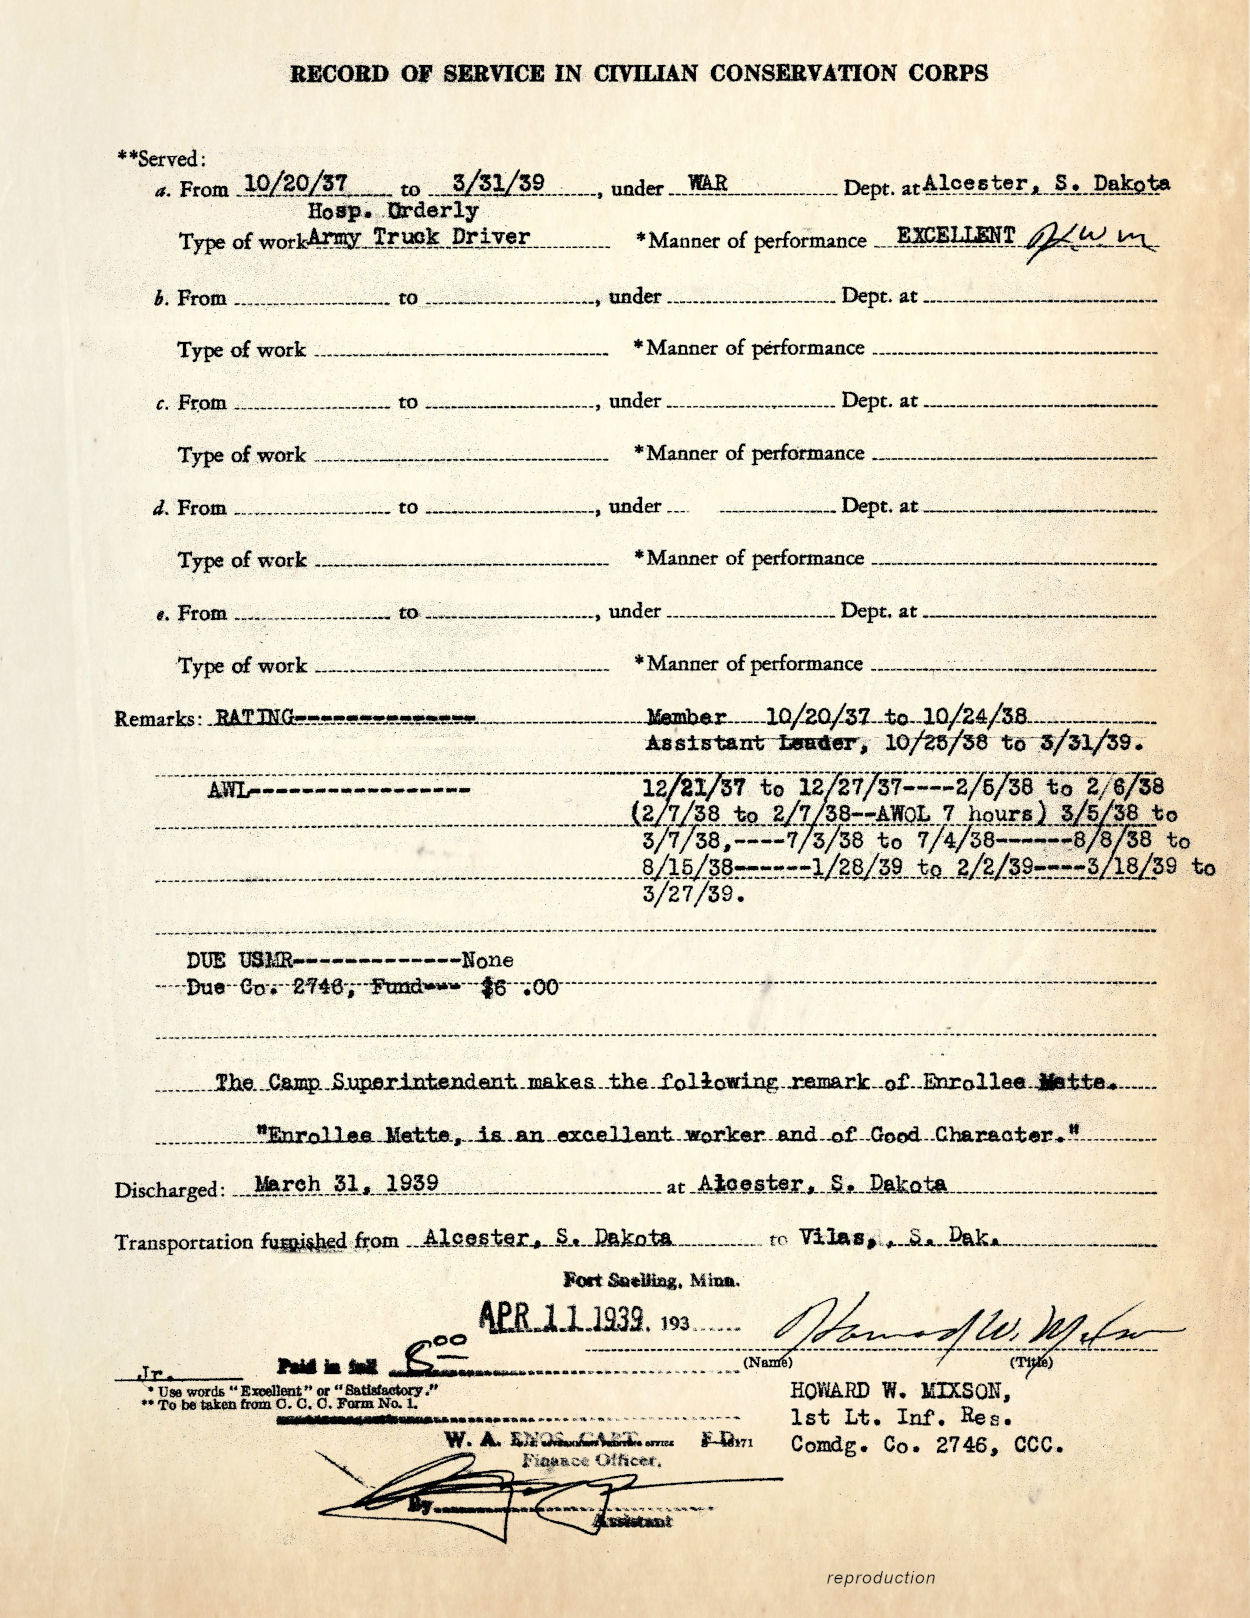 RECORD OF SERVICE IN CIVILIAN CONSERVATION CORPS
**Served:
a. From 10/20/37 to 3/31/39, under WAR Dept. at Alcester, S. Dakota
Hosp. Orderly
Type of work Army Truck Driver *Manner of performance EXCELLENT HWM
b. From to , under Dept. at
Type of work *Manner of performance
c. From to , under Dept. at
Type of work *Manner of performance
d. From to , under Dept. at
Type of work *Manner of performance
e. From to , under Dept. at
Type of work *Manner of performance
Remarks: RATING-------------- Member 10/20/37 to 10/24/38
Assistant Leader, 10/25/38 to 3/31/39.
AWL----------------- 12/21/37 to 12/27/37----2/5/38 to 2/6/38
(2/7/38 to 2/7/38--AWOL 7 hours) 3/5/38 to
3/7/38,----7/3/38 to 7/4/38------8/8/38 to
8/15/38------1/28/39 to 2/2/39----3/18/39 to
3/27/39.
DUE USMR-------------None
Due Co. 2746, Fund--- $6 .00
The Camp Superintendent makes the following remark of Enrollee Mette.
"Enrollee Mette, is an excellent worker and of Good Character."
Discharged: March 31, 1939 at Alcester, S. Dakota
Transportation furnished from Alcester, S. Dakota to Vilas, , S. Dak.
Fort Snelling, Minn.
APR 11 1939, 193
Howard W. Mixson
Paid in full
(Name) (Title)
Jr.
* Use words "Excellent" or "Satisfactory."
** To be taken from C. C. C. Form No. 1.
HOWARD W. MIXSON,
1st Lt. Inf. Res.
Comdg. Co. 2746, CCC.
W. A. ENOS, CAPT. F. D.
Finance Officer.
By
Assistant
reproduction